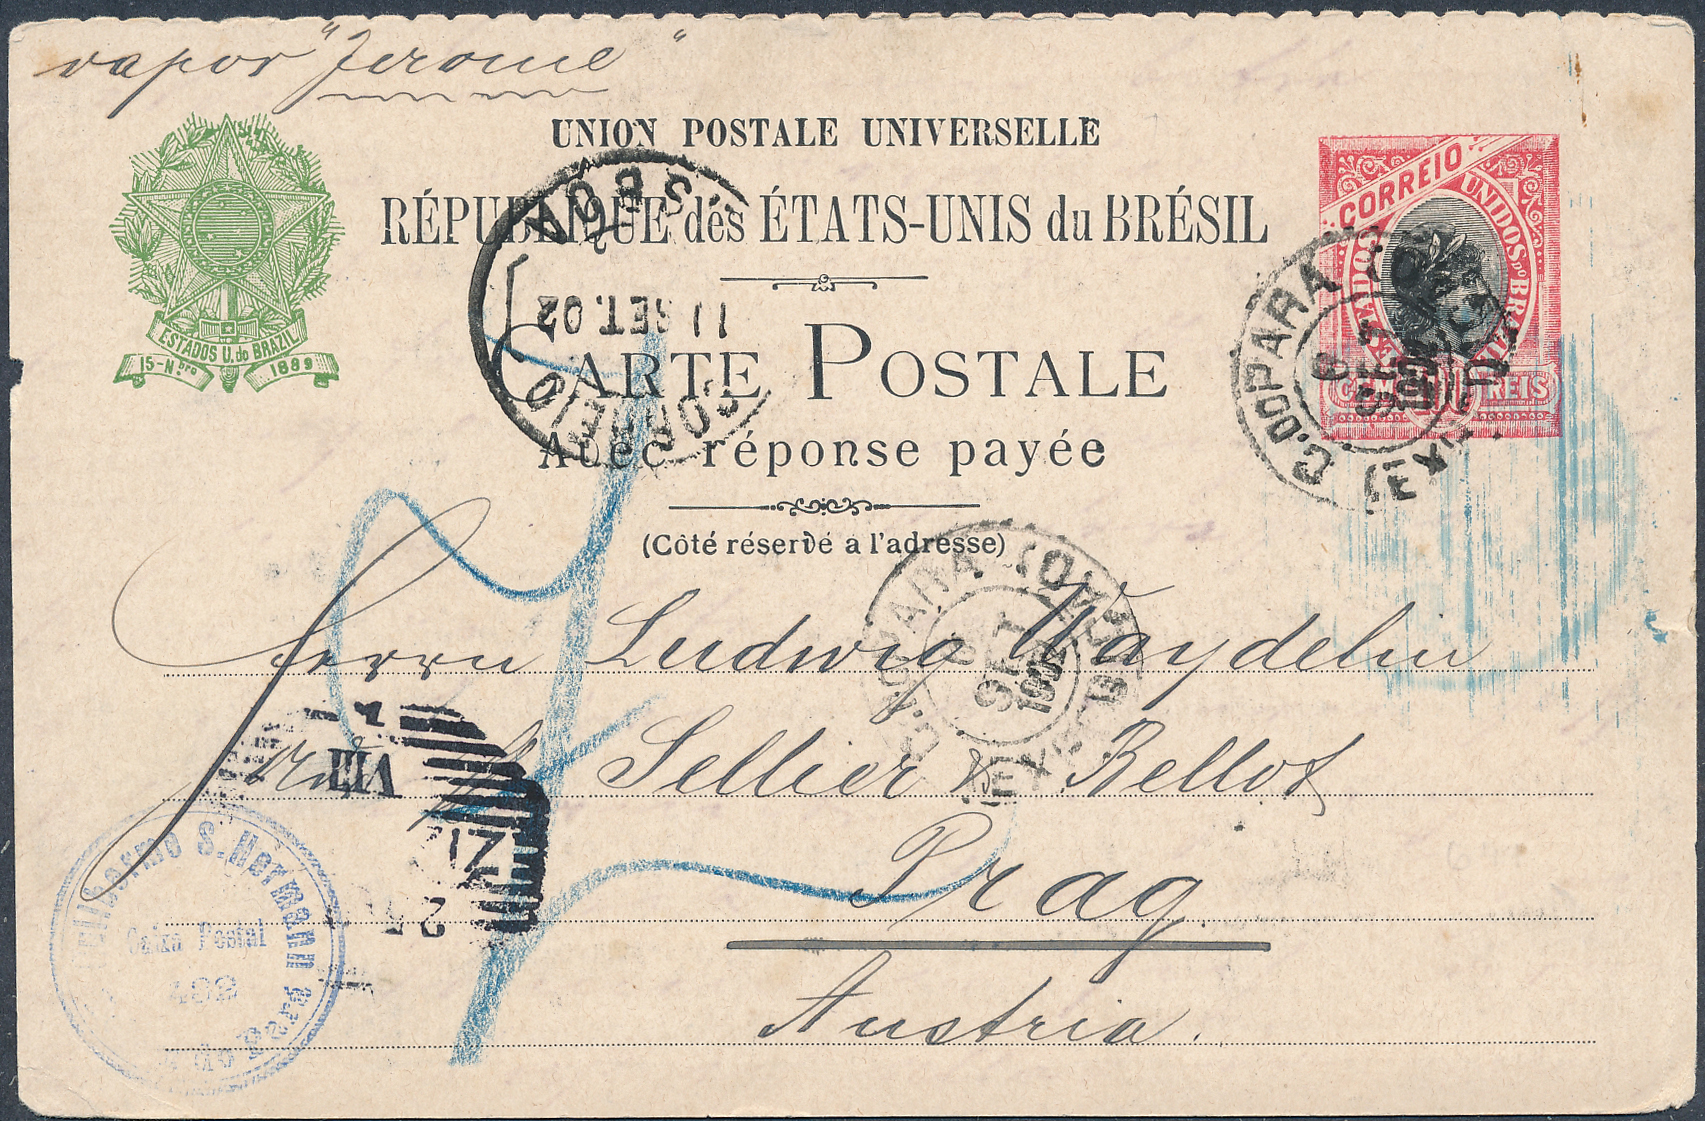 vapor "Jerome"
UNION POSTALE UNIVERSELLE
RÉPUBLIQUE des ÉTATS-UNIS du BRÉSIL
ESTADOS U. do BRAZIL
15-Nbro 1889
CORREIO
UNIDOS DO BRAZIL
REIS
CARTE POSTALE
Avec réponse payée
(Côté réservé a l'adresse)
CORREIO
11 SET. 02
C. DO PARA
SET
C. DO PARA
8
SET
1902
Herrn Ludwig Waydelin
Sellier & Bellot
Prag
Austria.
VIII
Guilhermo S. Hermann
Caixa Postal
499